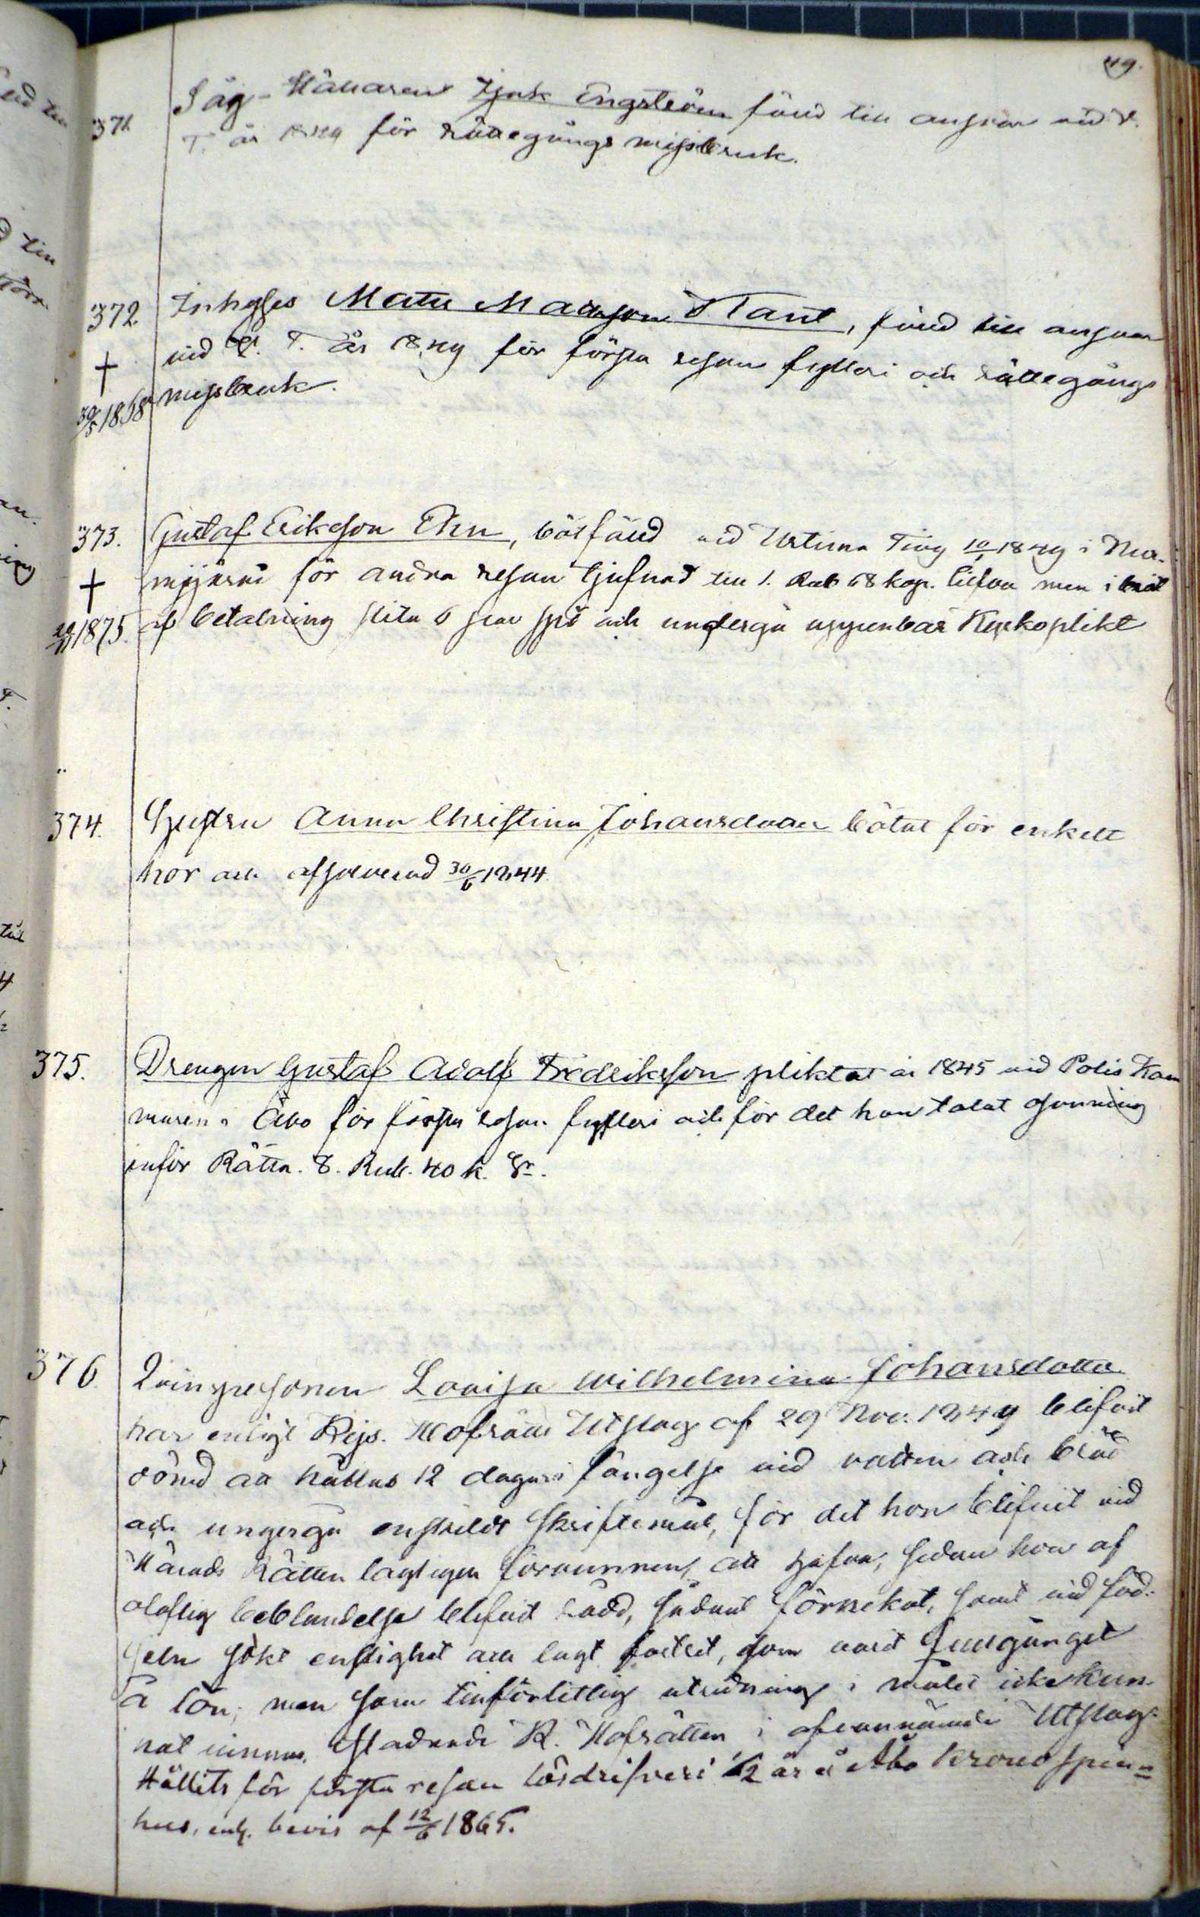 119.
371. Såg-Ställaren Isak Engström fäld till ansvar vid V.
T. år 1849 för rättegångs missbruk.
372. Inhyses Matts Mattsson Stant, fäld till ansvar
† vid V. T. år 1849 för första resan fylleri och rättegångs
1868 missbruk.
373. Gustaf Eriksson Ehn, bötfäld vid Urtima Ting 1849 i
† för andra resan tjufnad till 1. Rub 68 kop. Silfver men i brist
1875. af betalning slita 6 par spö och undergå uppenbar Kyrkoplikt
374. Hustru Anna Christina Johansdotter bötat för enkelt
hor och absolverad 30/6 1844.
375. Drengen Gustaf Adolf Fredriksson pliktat år 1845 vid Polis Kam
maren i Åbo för första resan fylleri och för det han talat osanning
inför Rätta. 8. Rub. 40 k. Sr.
376. Qvinspersonen Lovisa Wilhelmina Johansdotter
har enligt Kejs. Hofrätts Utslag af 29 Nov. 1849 blifvit
dömd att hållas 12 dagar i fängelse vid vatten och bröd
och ungergå enskildt skriftemål, för det hon blifvit vid
Härads Rätten lagligen förvunnen att hafva, sedan hon af
olaflig beblandelse blifvit rådd, sådant förnekat, samt vid föd-
seln sökt enslighet och lagt fostret, som varit fullgånget
å lön; men som tillförlitlig utredning i målet icke kun-
nat vinnas, K. Hofrätten i ofvannämnde Utslag.
Hållits för första resan lösdrifveri 1/2 år å Åbo Kronospinn=
hus, enl. bevis af 12/6 1865.